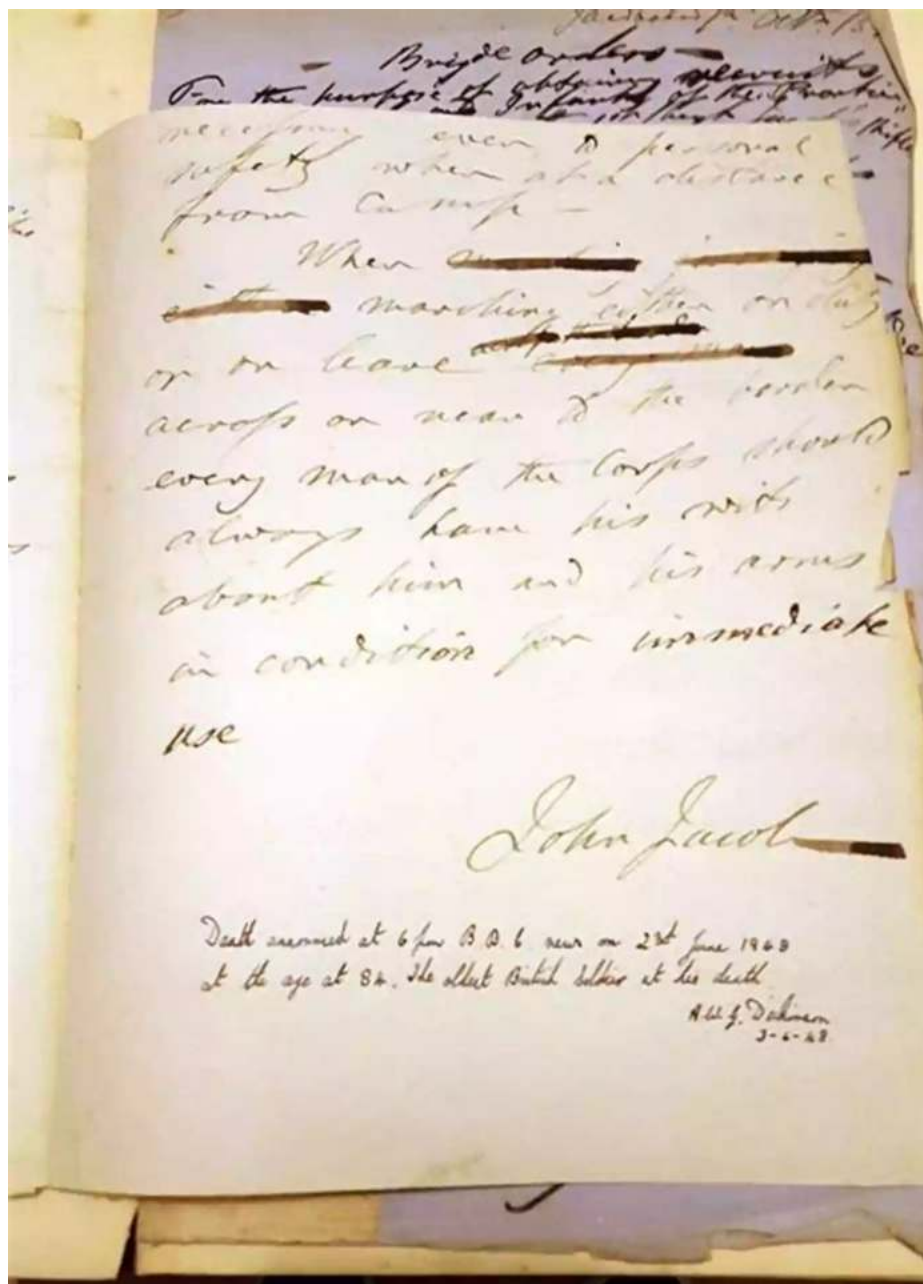 Brigde orders
For the purpose of obtaining recruits
Infantry of the Frontier
Rifle
necessary even to personal
safety when at a distance
from Camp —
When
marching either on duty
or on leave
across or near to the border
every man of the Corps should
always have his wits
about him and his arms
in condition for immediate
use
John Jacob
Death announced at 6 pm B.B.C news on 2nd June 1948
at the age at 84. The oldest British Soldier at his death
Dickinson
3-6-48